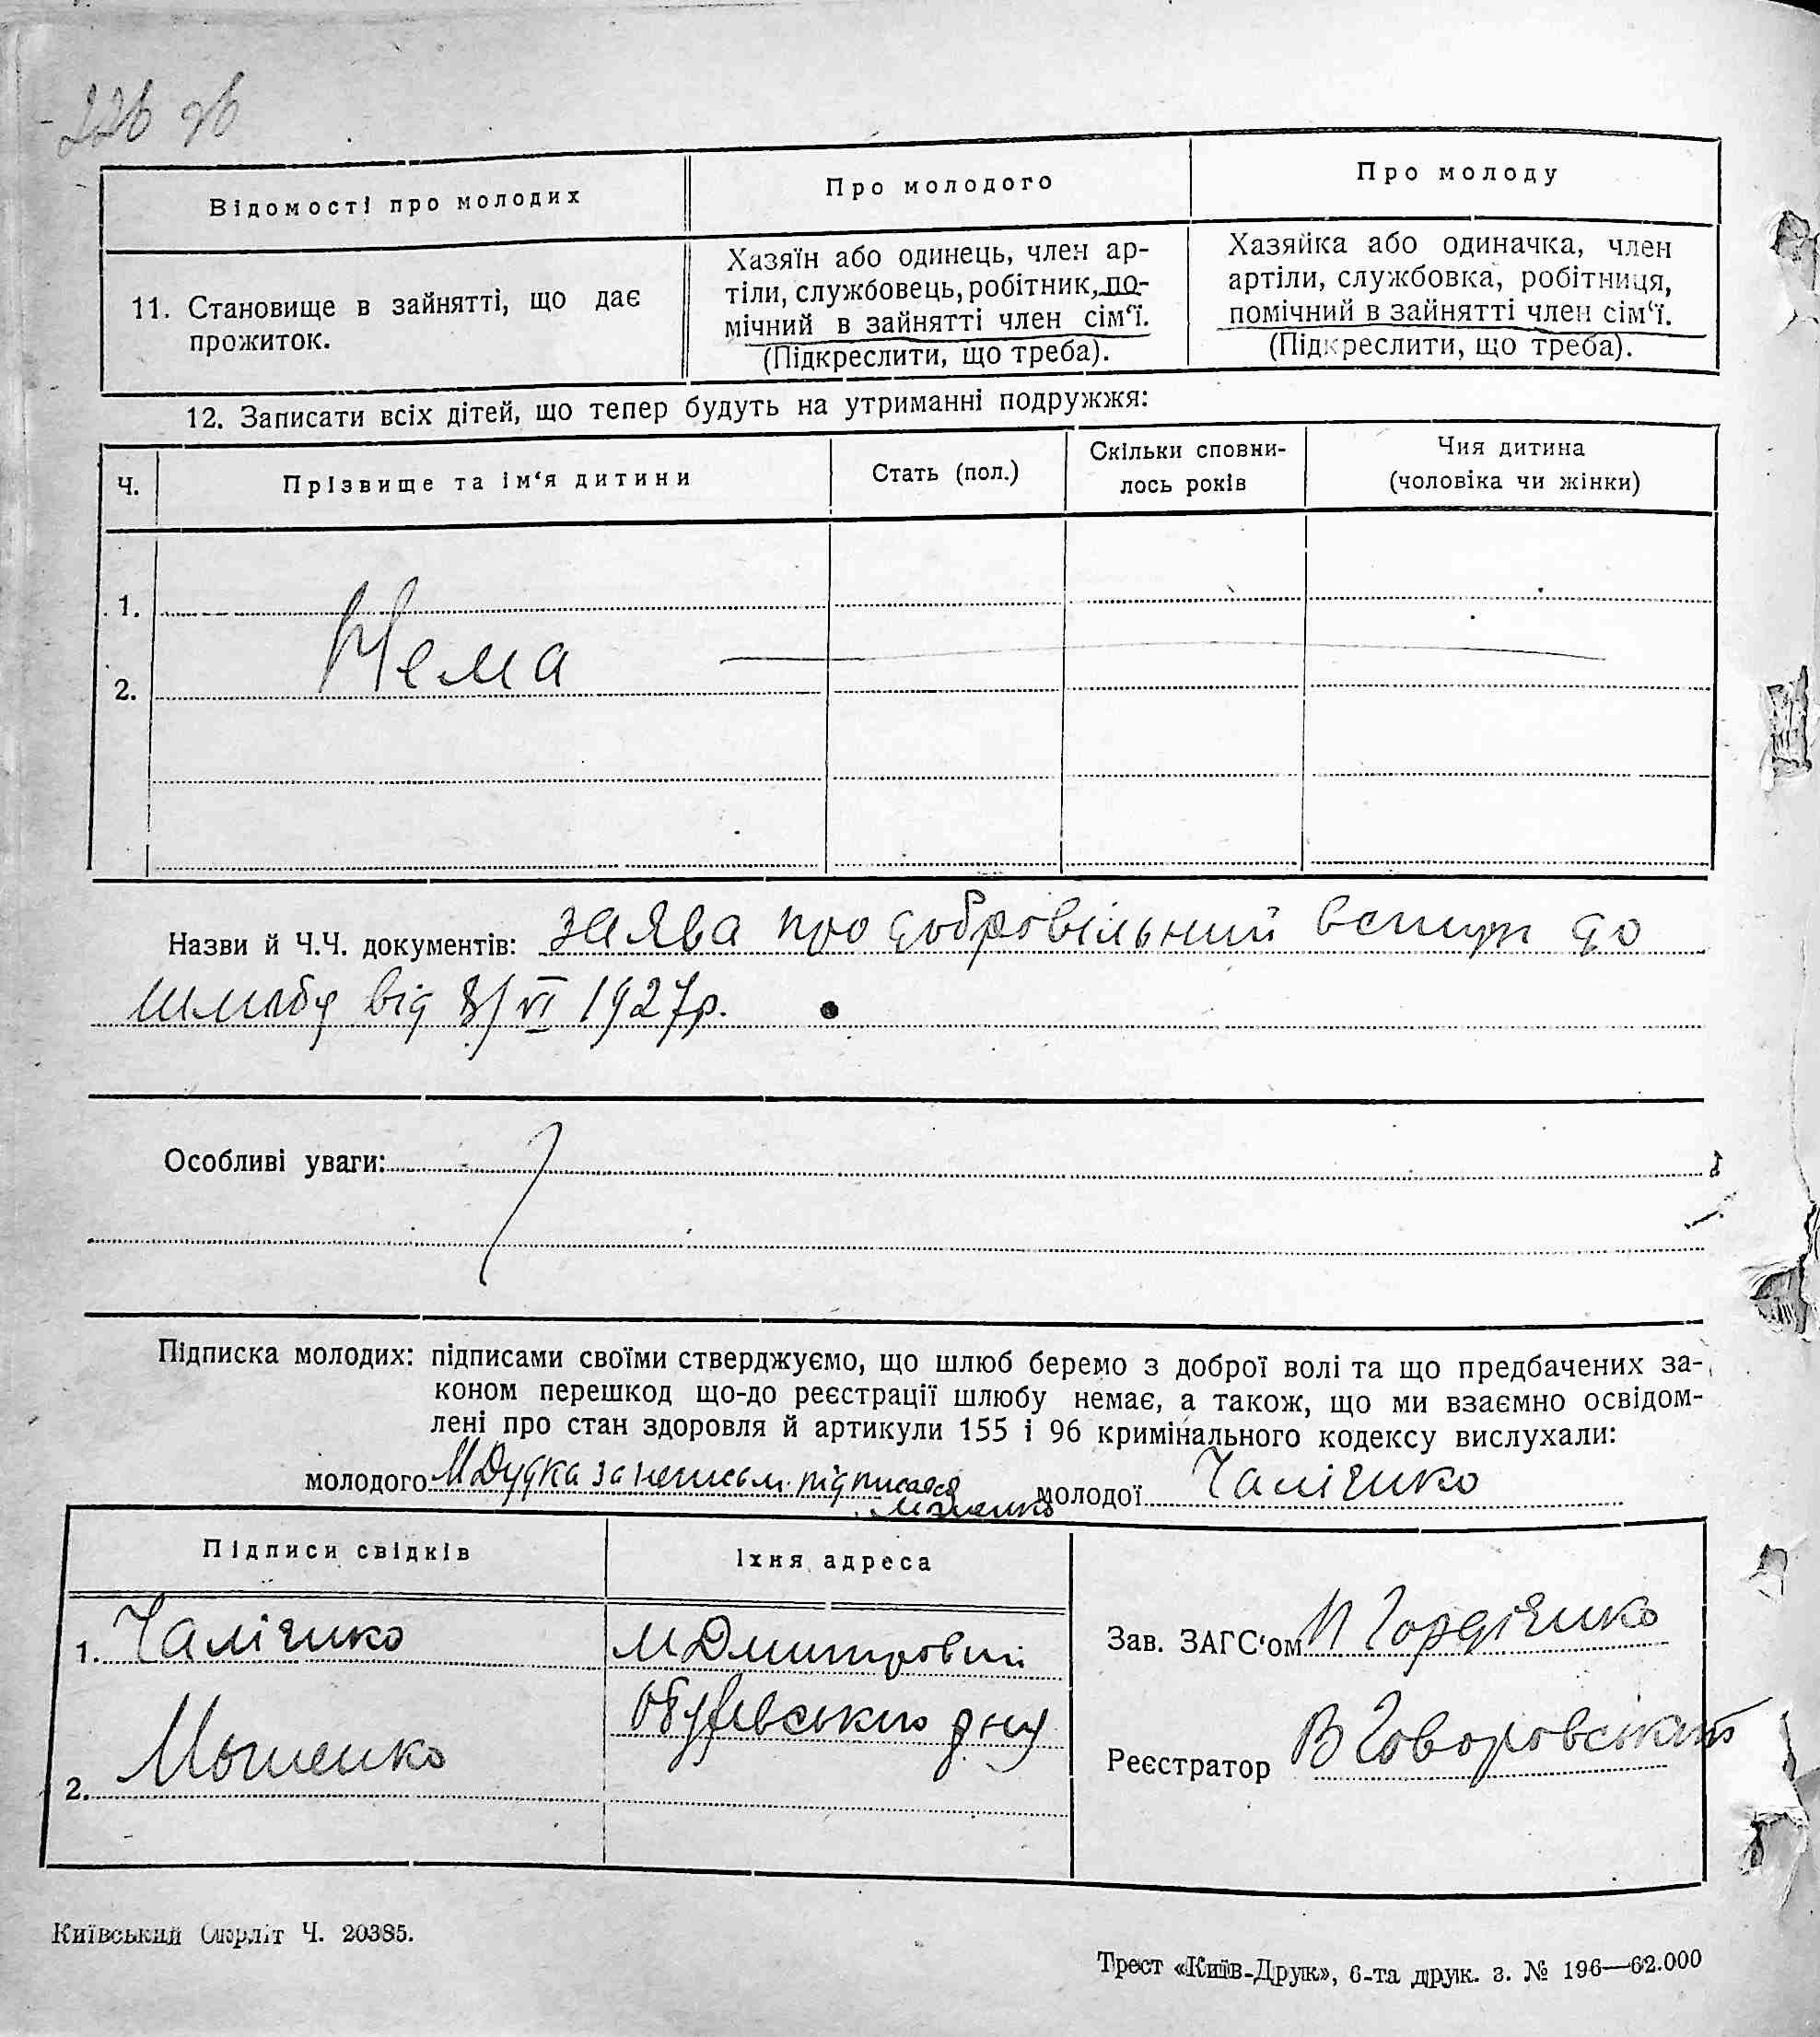 226 зв
Відомості про молодих
Про молодого
Про молоду
11. Становище в зайнятті, що дає
прожиток.
Хазяїн або одинець, член ар-
тіли, службовець, робітник, по-
мічний в зайнятті член сім'ї.
(Підкреслити, що треба).
Хазяйка або одиначка, член
артіли, службовка, робітниця,
помічний в зайнятті член сім'ї.
(Підкреслити, що треба).
12. Записати всіх дітей, що тепер будуть на утриманні подружжя:
Ч.
Прізвище та ім'я дитини
Стать (пол.)
Скільки сповни-
лось років
Чия дитина
(чоловіка чи жінки)
1.
Нема
2.
Назви й Ч.Ч. документів: заява про добровільний вступ до
шлюбу від 8/VI 1927р.
Особливі уваги:
Підписка молодих: підписами своїми стверджуємо, що шлюб беремо з доброї волі та що предбачених за-
коном перешкод що-до реєстрації шлюбу немає, а також, що ми взаємно освідом-
лені про стан здоровля й артикули 155 і 96 кримінального кодексу вислухали:
молодого М Дудка за неписьм. підписався
молодої
Підписи свідків
Їхня адреса
1.
М Дмитровичі
Зав. ЗАГС'ом Гордієнко
Обухівського р-ну
2.
Реєстратор В Говоровський
Київський Окрліт Ч. 20385.
Трест «Київ-Друк», 6-та друк. з. № 196—62.000